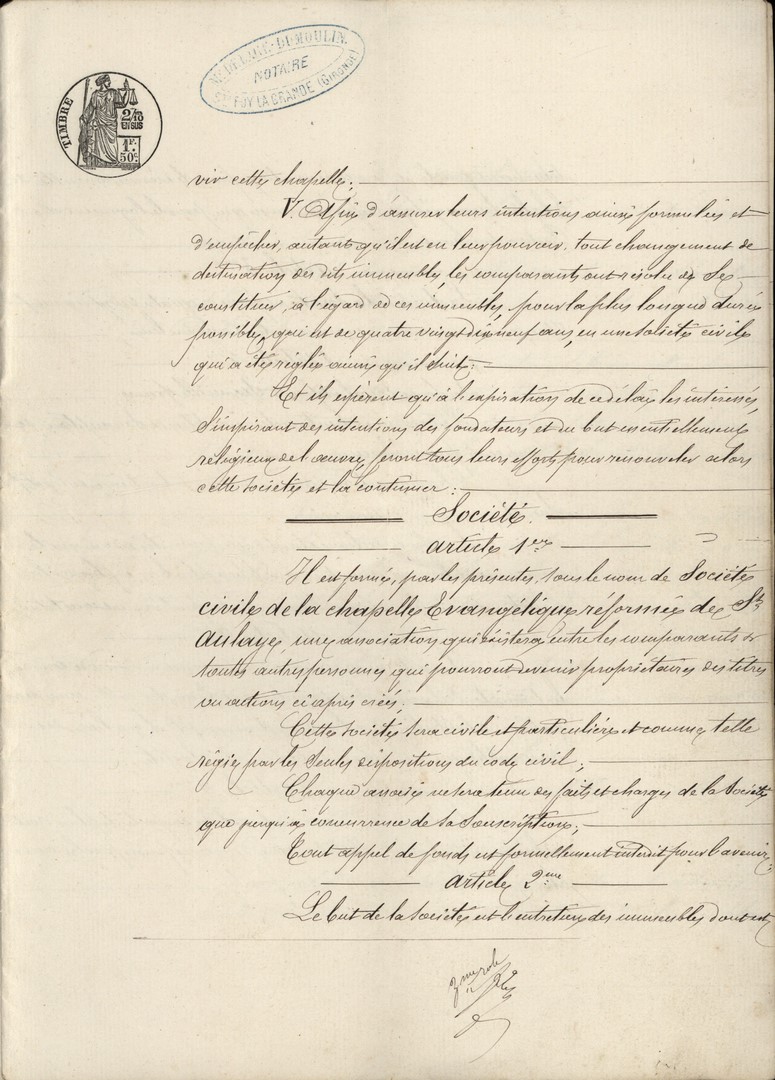 NOTAIRE
STE FOY LA GRANDE (GIRONDE)
TIMBRE
2/10
EN SUS
1F.
50c.
vir cette chapelle;
V. Afin d'assurer leurs intentions ainsi formulées et
d'empêcher, autant qu'il est en leur pouvoir, tout changement de
destination des dits immeubles, les comparants ont résolu de se
constituer, à l'égard de ces immeubles, pour la plus longue durée
possible, qui est de quatre vingt dix neuf ans, en une société civile
qui a été réglée ainsi qu'il suit:
Et ils espèrent qu'à l'expiration de ce délai les intéressés,
s'inspirant des intentions des fondateurs et du but essentiellement
religieux de l'œuvre, feront tous leurs efforts pour renouveler alors
cette société et la continuer:
Société.
article 1er
Il est formé, par les présentes, sous le nom de Société
civile de la chapelle Evangélique réformée de St
Aulaye, une association qui existera entre les comparants &
toutes autres personnes qui pourront devenir propriétaires des titres
ou actions ci après créés;
Cette société sera civile et particulière et comme telle
régie par les seules dispositions du code civil;
Chaque associé ne sera tenu des faits et charges de la Société
que jusqu'à concurrence de sa Souscription;
Tout appel de fonds est formellement interdit pour l'avenir;
article 2me
Le but de la Société est l'entretien des immeubles dont est